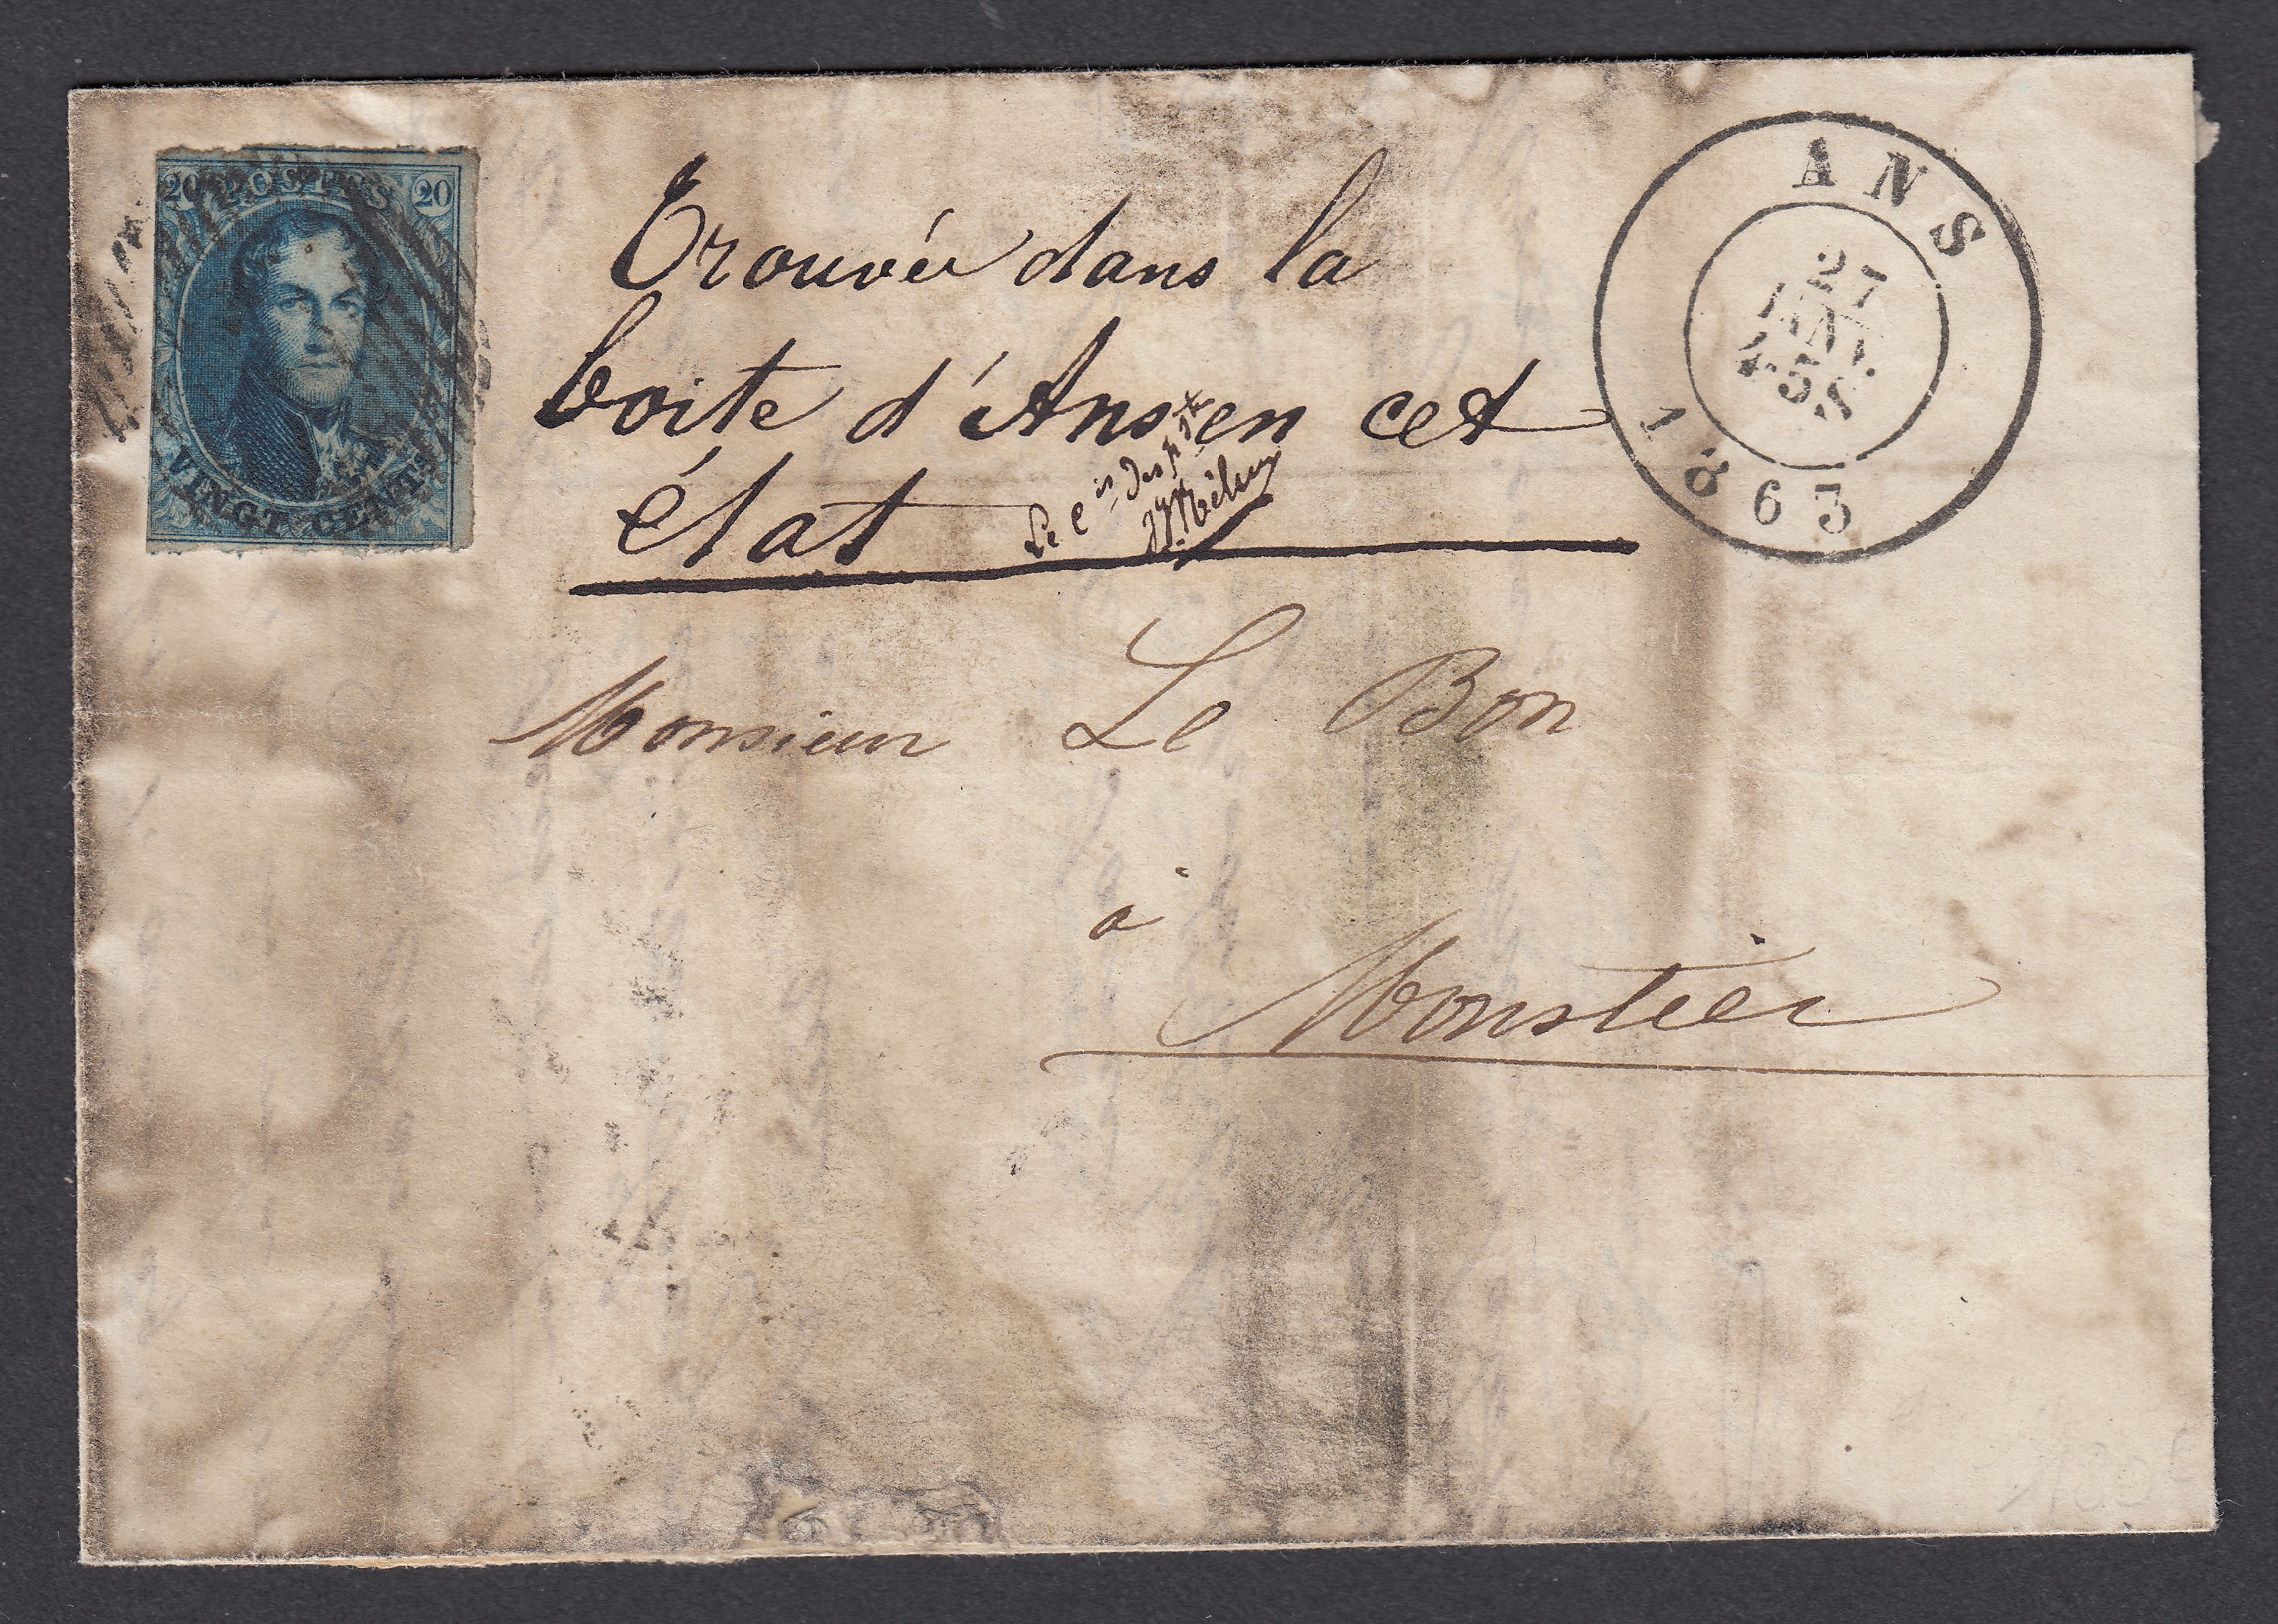 20 POSTES 20
VINGT CENTS
Trouvée dans la
boite d'Ans en cet
état
Le Cis des ptes
ANS
27
5
1863
Monsieur Le Bon
à
Monstier